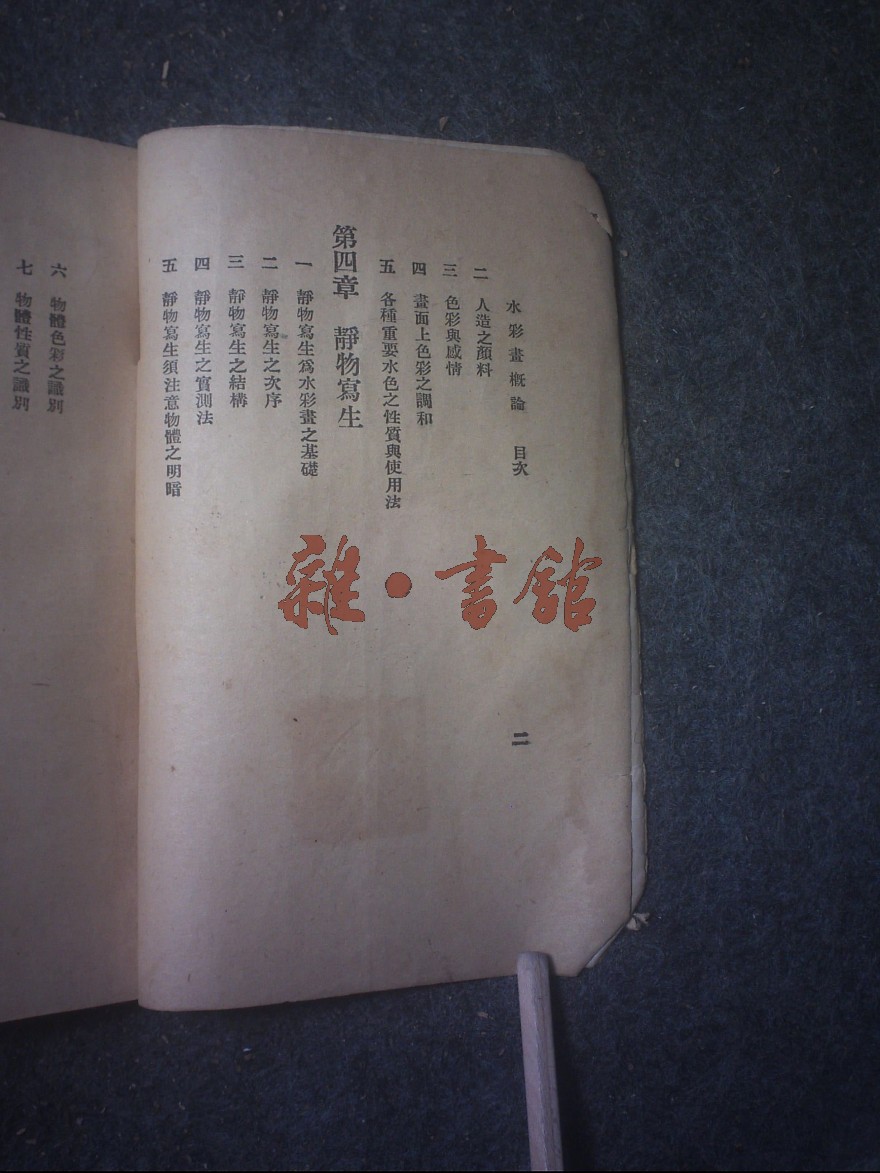 水彩畫概論　目次
二　人造之顏料
三　色彩與感情
四　畫面上色彩之調和
五　各種重要水色之性質與使用法
第四章　靜物寫生
一　靜物寫生爲水彩畫之基礎
二　靜物寫生之次序
三　靜物寫生之結構
四　靜物寫生之實測法
五　靜物寫生須注意物體之明暗
二
六　物體色彩之識別
七　物體性質之識別
雜·書館